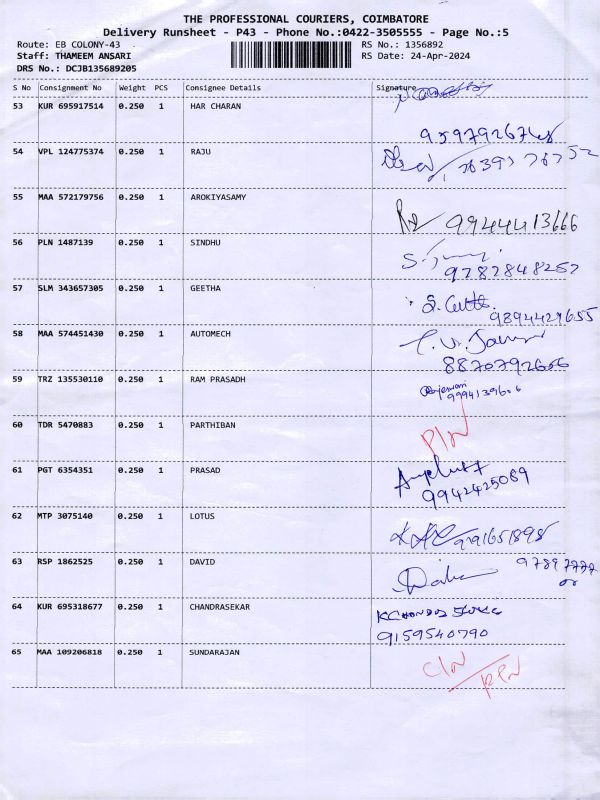 THE PROFESSIONAL COURIERS, COIMBATORE
Delivery Runsheet - P43 - Phone No.:0422-3505555 - Page No.:5
Route: EB COLONY-43 RS No.: 1356892
Staff: THAMEEM ANSARI RS Date: 24-Apr-2024
DRS No.: DCJB135689205
S No Consignment No Weight PCS Consignee Details Signature
53 KUR 695917514 0.250 1 HAR CHARAN
54 VPL 124775374 0.250 1 RAJU
55 MAA 572179756 0.250 1 AROKIYASAMY
9944413666
56 PLN 1487139 0.250 1 SINDHU
9787848257
57 SLM 343657305 0.250 1 GEETHA
9894429655
58 MAA 574451430 0.250 1 AUTOMECH
8870792606
59 TRZ 135530110 0.250 1 RAM PRASADH
60 TDR 5470883 0.250 1 PARTHIBAN
61 PGT 6354351 0.250 1 PRASAD
9942425089
62 MTP 3075140 0.250 1 LOTUS
9791651898
63 RSP 1862525 0.250 1 DAVID
64 KUR 695318677 0.250 1 CHANDRASEKAR
9159540790
65 MAA 109206818 0.250 1 SUNDARAJAN